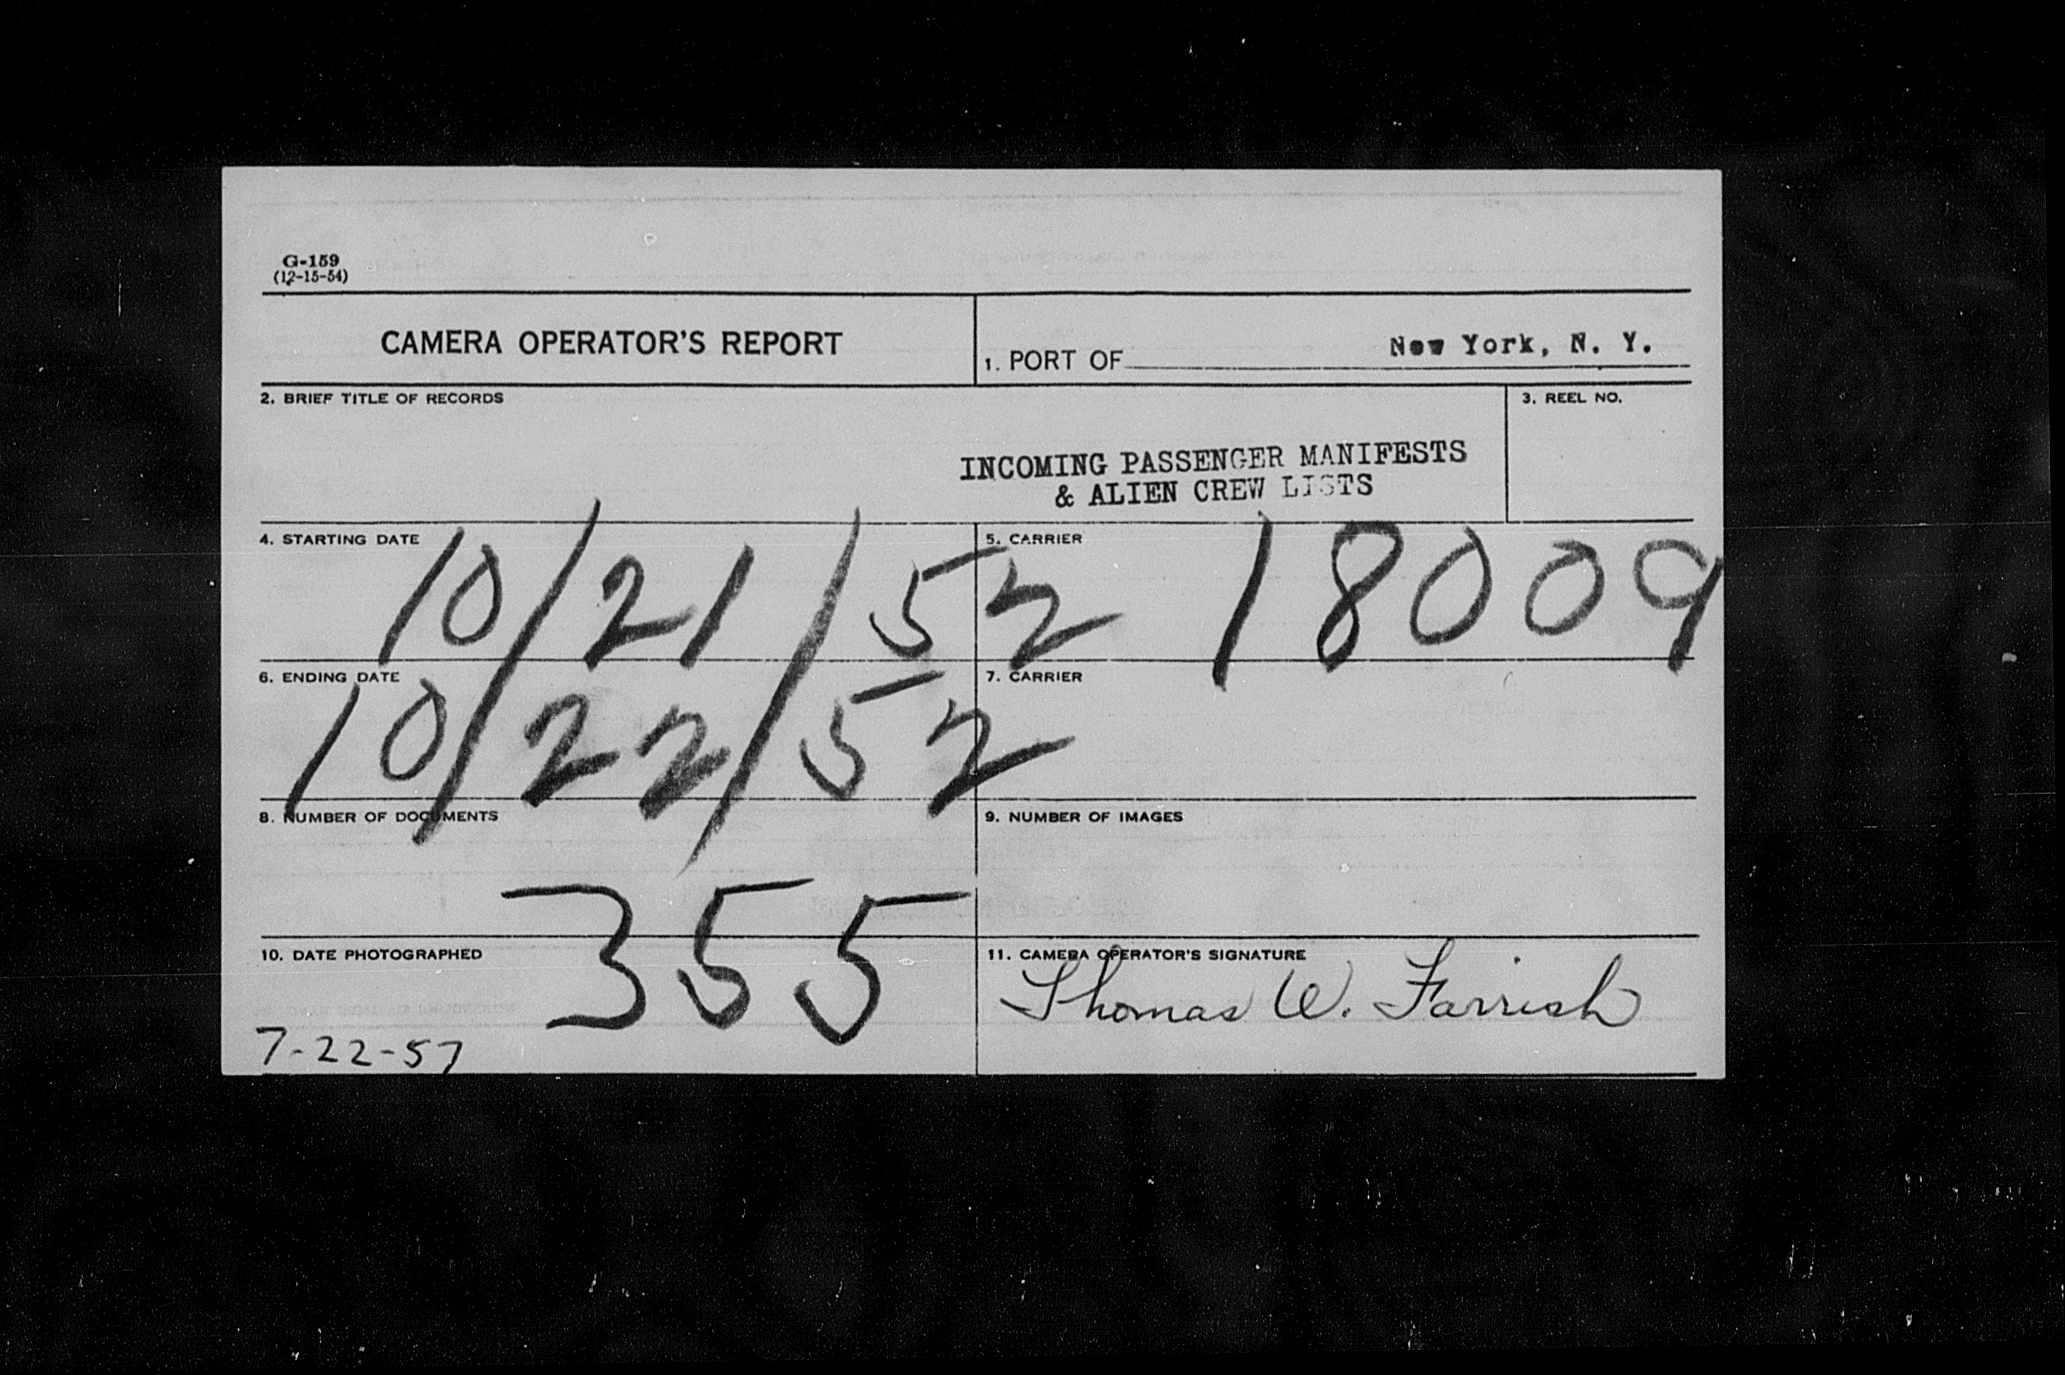 G-159
(12-15-54)
CAMERA OPERATOR'S REPORT
1. PORT OF New York, N. Y.
2. BRIEF TITLE OF RECORDS
INCOMING PASSENGER MANIFESTS
& ALIEN CREW LISTS
3. REEL NO.
4. STARTING DATE
10/21/52
5. CARRIER
18009
6. ENDING DATE
10/22/52
7. CARRIER
8. NUMBER OF DOCUMENTS
355
9. NUMBER OF IMAGES
10. DATE PHOTOGRAPHED
7-22-57
11. CAMERA OPERATOR'S SIGNATURE
Thomas W. Farrish